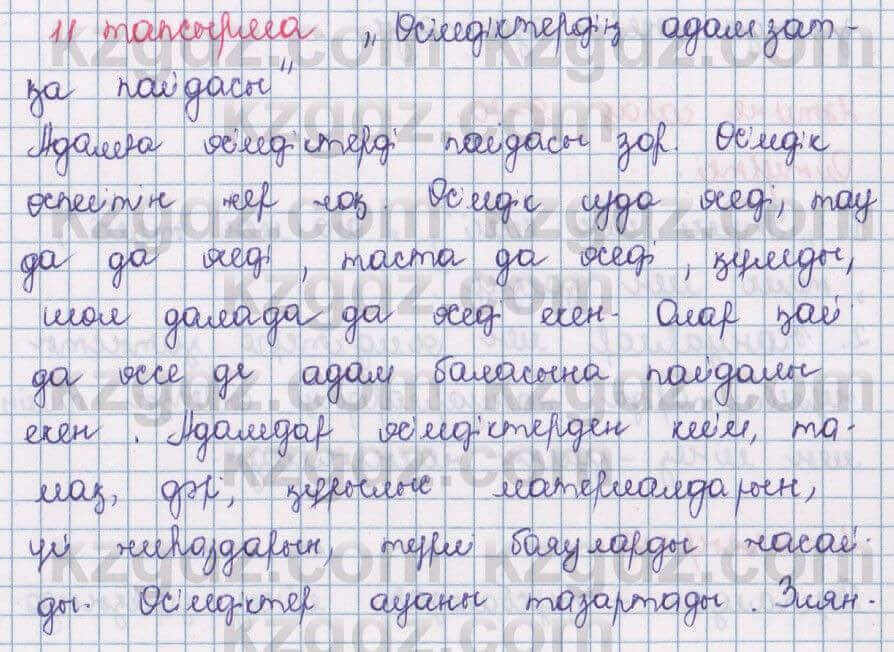 11 тапсырма „Өсімдіктердің адамзат-
қа пайдасы"
Адамға өсімдіктерді пайдасы зор. Өсімдік
өспейтін жер жоқ. Өсімдік суда өседі, тау
да да өседі, таста да өседі, құмды,
шөл далада да өседі екен. Олар қай
да өссе де адам баласына пайдалы
екен. Адамдар өсімдіктерден киім, та-
мақ, дәрі, құрылыс материалдарын,
үй жиһаздарын, түрлі бояуларды жасай-
ды. Өсімдіктер ауаны тазартады. Зиян-
kzgdz.com